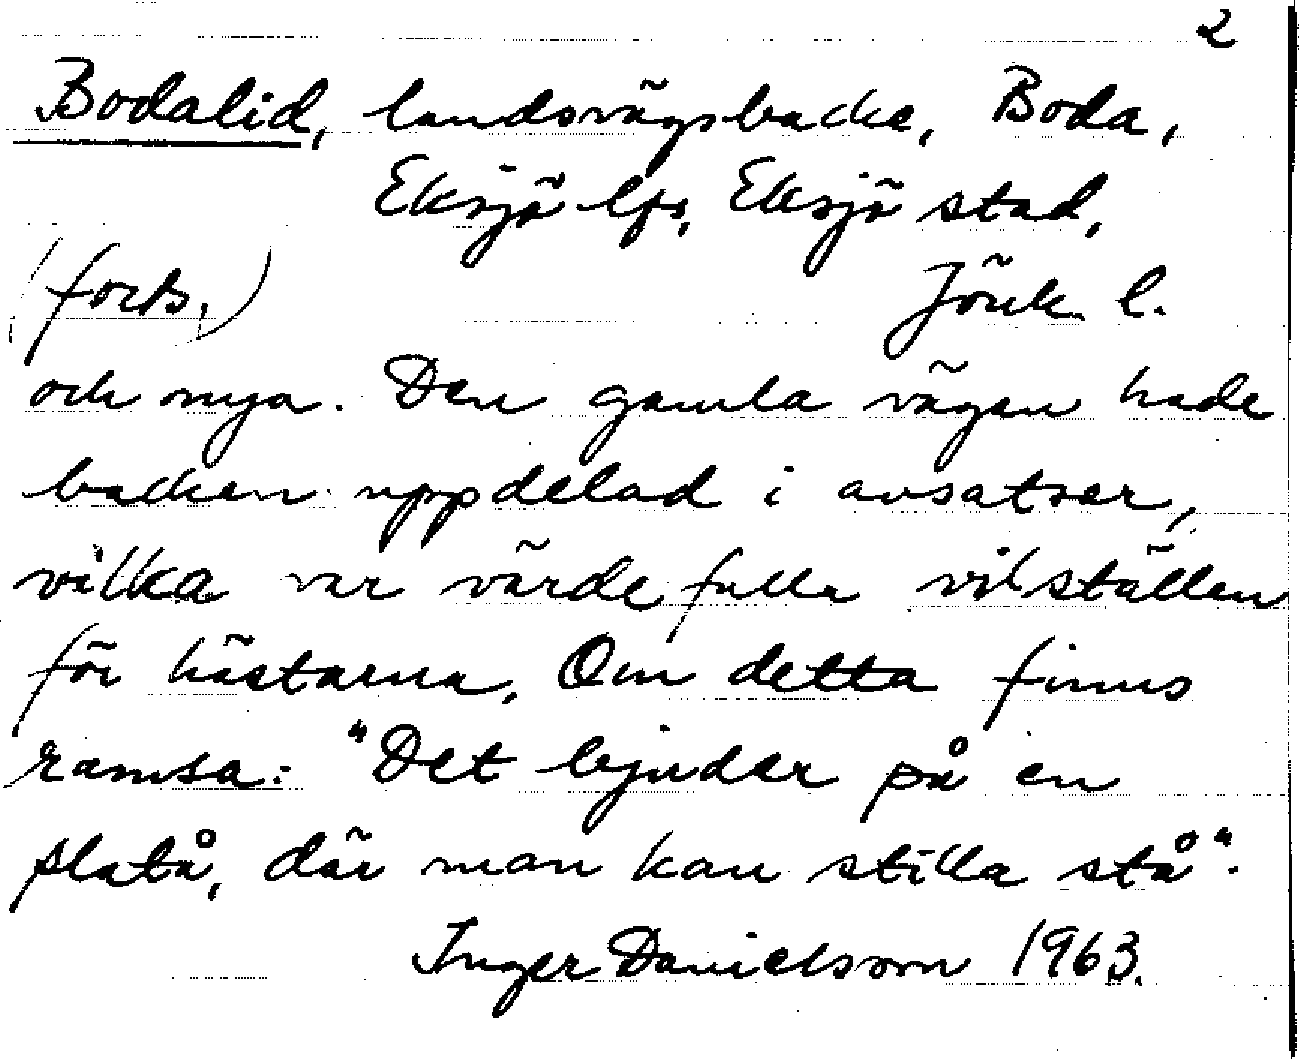 2
Bodalid, landsvägsbacke, Boda,
Eksjö lfs, Eksjö stad,
(forts.) Jönk. l.
och nya. Den gamla vägen hade
backen uppdelad i avsatser,
vilka var värdefulla vilställen
för hästarna. Om detta finns
ramsa: "Det bjuder på en
platå, där man kan stilla stå".
Inger Danielsson 1963.